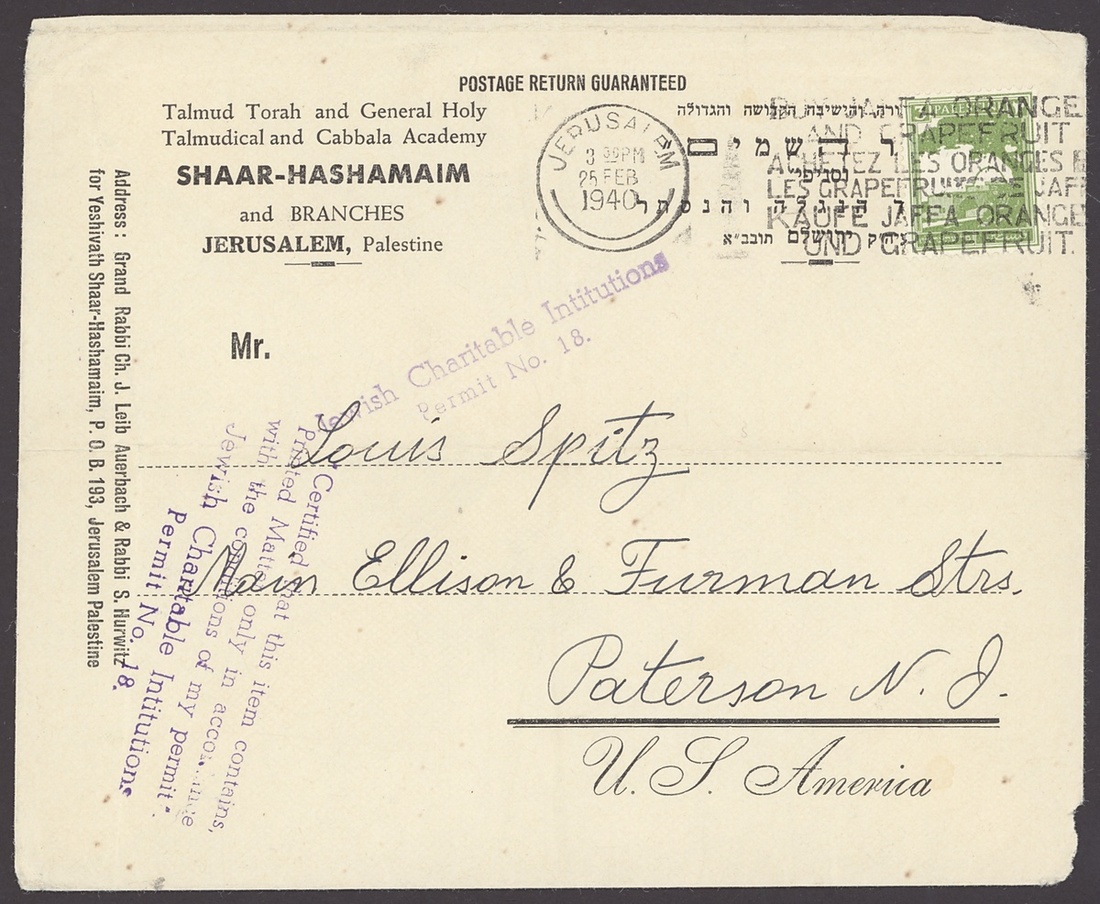 POSTAGE RETURN GUARANTEED
Talmud Torah and General Holy
Talmudical and Cabbala Academy
SHAAR-HASHAMAIM
and BRANCHES
JERUSALEM, Palestine
והישיבה הקדושה והגדולה
השמים
וסניפי
הנגלה והנסתר
ירושלם תובב״א
JERUSALEM
3 30PM
25 FEB
1940
BUY JAFFA ORANGE
AND GRAPEFRUIT
ACHETEZ LES ORANGES E
LES GRAPEFRUITS DE JAFF
KAUFE JAFFA ORANGE
UND GRAPEFRUIT.
Address: Grand Rabbi Ch. J. Leib Auerbach & Rabbi S. Hurwitz
for Yeshivath Shaar-Hashamaim, P. O. B. 193, Jerusalem Palestine
Jewish Charitable Intitutions
Permit No. 18.
Mr.
Louis Spitz
Main Ellison & Furman Strs.
Paterson N. J.
U. S. America
"Certified that this item contains,
Printed Matter only in accordance
with the conditions of my permit"
Jewish Charitable Intitutions
Permit No. 18.